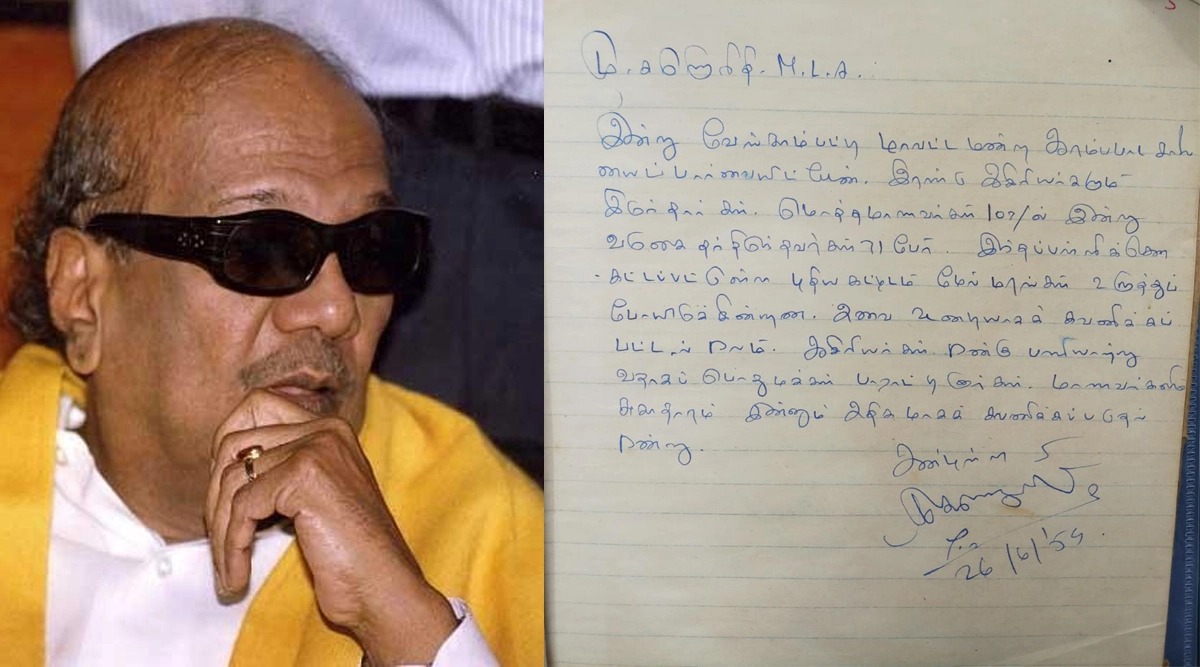 மு. கருணாநிதி. M.L.A.
இன்று வேங்காம்பட்டி மாவட்ட மன்ற ஆரம்பபாடசாலை
யைப் பார்வையிட்டேன். இரண்டு ஆசிரியர்களும்
இருந்தார்கள். மொத்த மாணவர்கள் 107ல் இன்று
வருகை தந்திருந்தவர்கள் 71 பேர். இந்தப்பள்ளிக்கென
கட்டப்பட்டுள்ள புதிய கட்டிடம் மேல் மரங்கள் உளுத்துப்
போயிருக்கின்றன. இவை உடனடியாகக் கவனிக்கப்
பட்டால் நலம். ஆசிரியர்கள் நன்கு பணியாற்று
வதாகப் பொதுமக்கள் பாராட்டினர்கள். மாணவர்களின்
சுகாதாரம் இன்னும் அதிகமாகக் கவனிக்கப்படுதல்
நன்று.
அன்புள்ள
26/6/'59